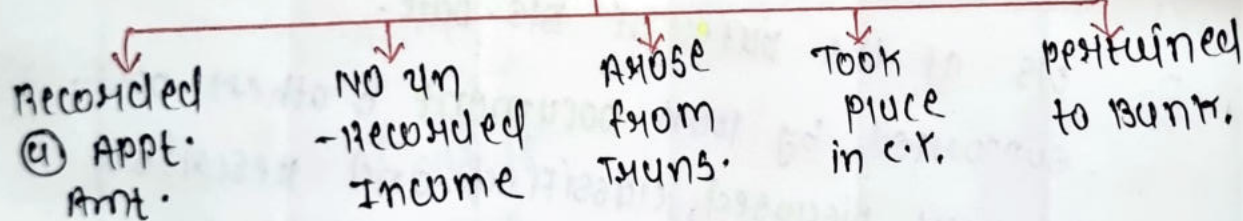 Recorded
@ Appt.
Amt.
No un
-Recorded
Income
Arose
from
Trans.
Took
place
in c.Y.
pertained
to Bank.